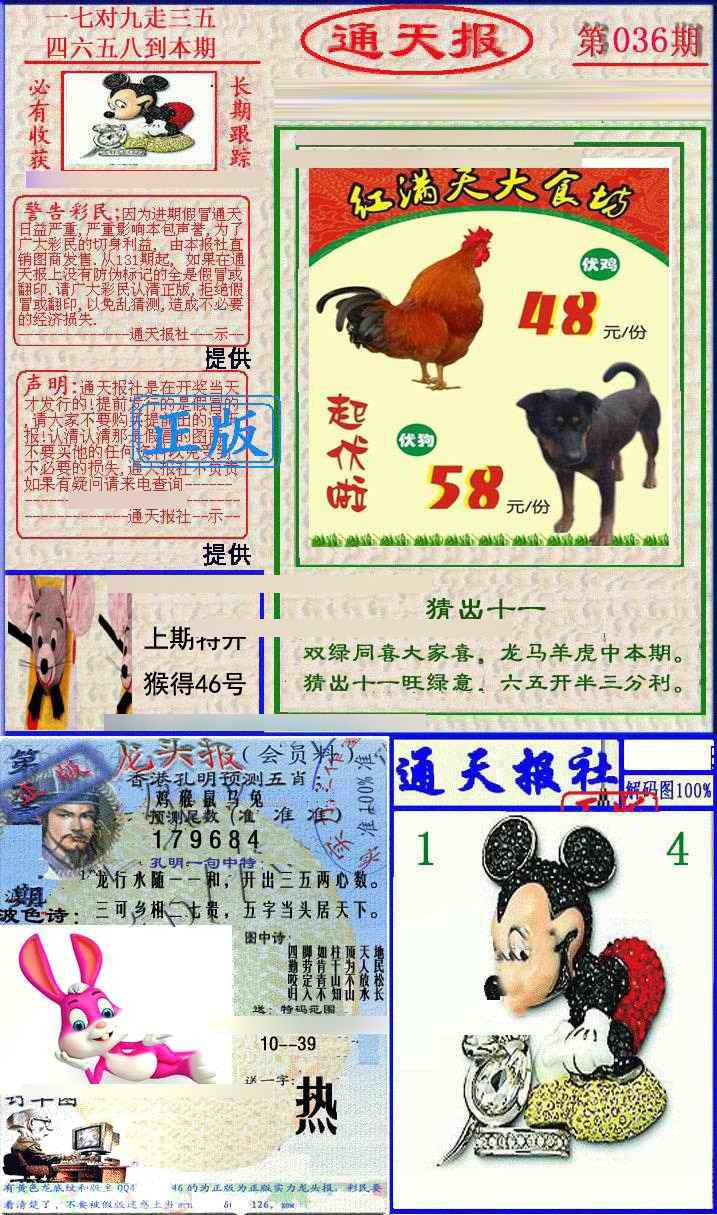 一七对九走三五
四六五八到本期
必有收获
长期跟踪
通天报
第036期
警告彩民:因为进期假冒通天
日益严重,严重影响本包声誉,为了
广大彩民的切身利益, 由本报社直
销图商发售.从131期起, 如果在通
天报上没有防伪标记的全是假冒或
翻印.请广大彩民认清正版,拒绝假
冒或翻印,以免乱猜测,造成不必要
的经济损失.
-------------通天报社---示--
提供
声明:通天报社是在开奖当天
才发行的!提前发行的是假冒的
,请大家不要购买提前出的通天
报!认清认清那是假冒的图
不要买他的任何
不必要的损失,通天报社不负责
如果有疑问请来电查询------
-------------通天报社--示--
正版
提供
红满天大食坊
伏鸡
48元/份
起伏啦
伏狗
58元/份
上期特开
猴得46号
猜出十一
双绿同喜大家喜。龙马羊虎中本期。
猜出十一旺绿意。六五开半三分利。
第
期
龙头报(会员料)
香港孔明预测五肖
鸡猴鼠马兔
预测尾数(准 准 准)
179684
孔明一句中特
龙行水随一一和，开出三五两心数。
波色诗:
三可乡相二七贵，五字当头居天下。
图中诗
地民松长
天人放水
顶为不山
柱干山知
如肯青不
脚劳定入
四勤咬明
送：特码范围
10--39
送一字:
热
有黄色龙底纹和版主QQ4 46的为正版为正版实力龙头报。彩民要
看清楚了，不要被假版迷惑上当 126,
通天报社
解码图100%
1
4